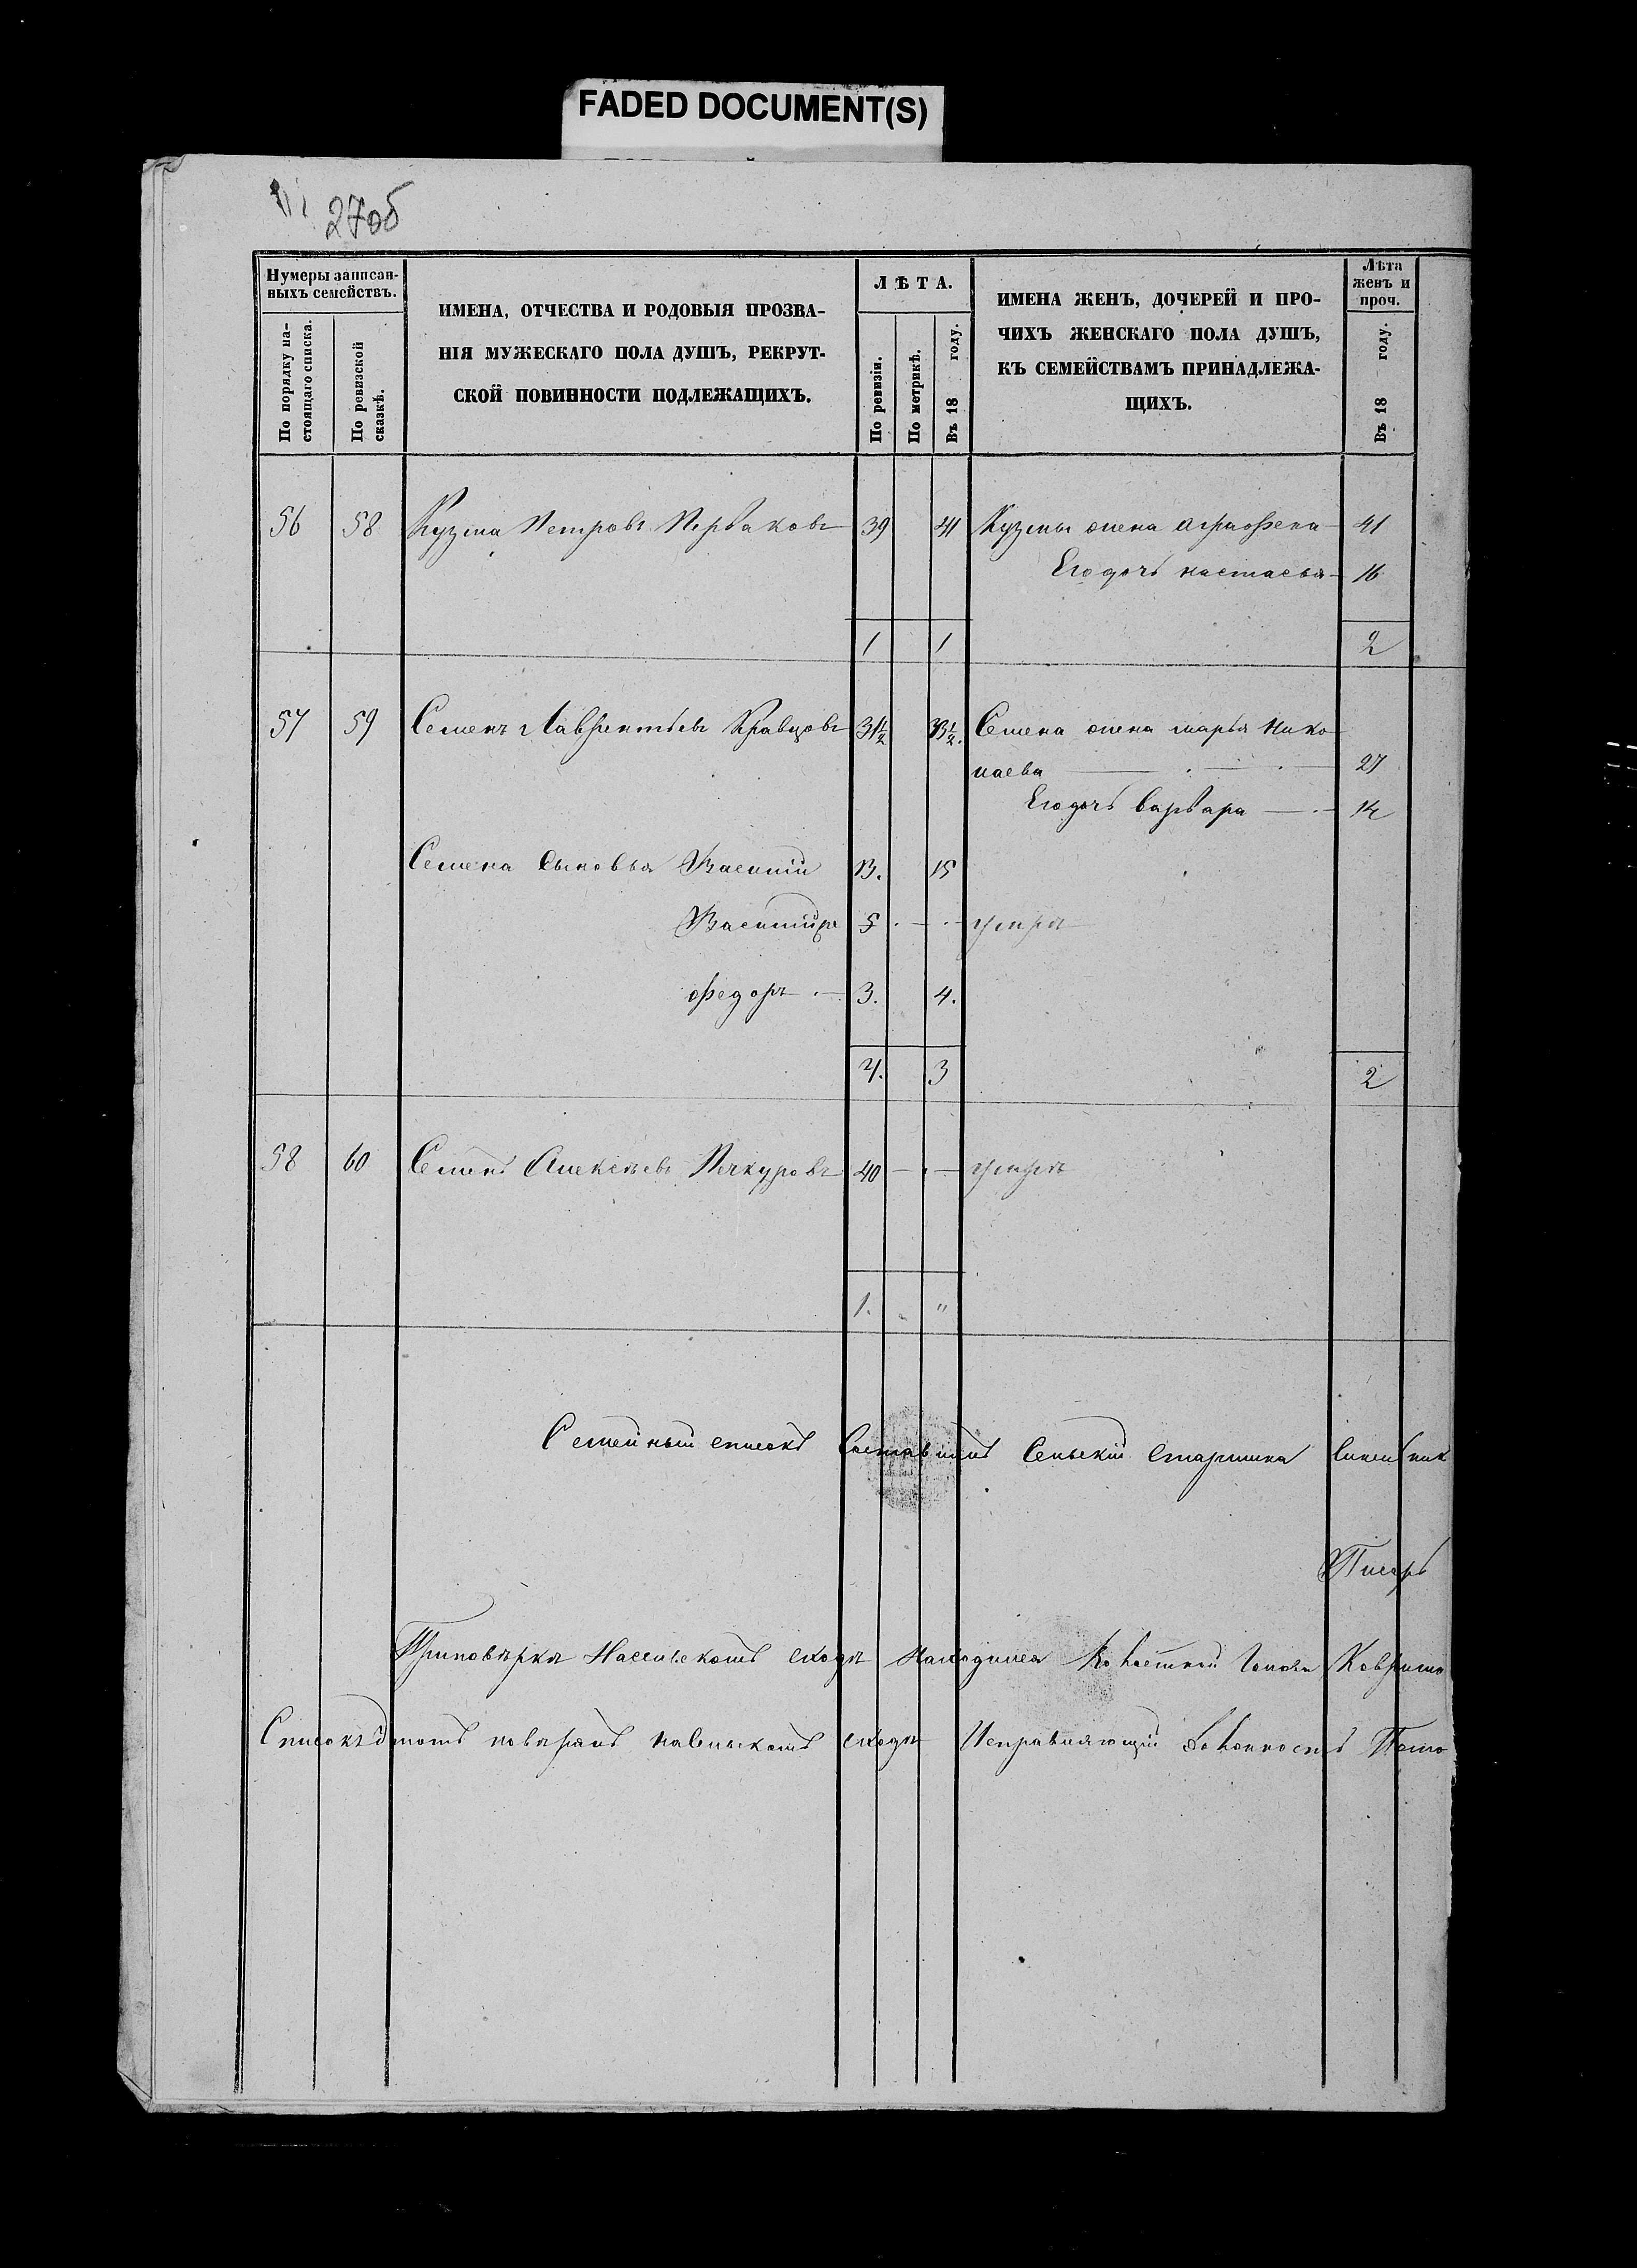 FADED DOCUMENT(S)
27об
Нумеры записан-
ныхъ семействъ.
По порядку на-
стоящаго списка.
По ревизской
сказкѣ.
ИМЕНА, ОТЧЕСТВА И РОДОВЫЯ ПРОЗВА-
НІЯ МУЖЕСКАГО ПОЛА ДУШЪ, РЕКРУТ-
СКОЙ ПОВИННОСТИ ПОДЛЕЖАЩИХЪ.
Л Ѣ Т А.
По ревизіи.
По метрикѣ.
Въ 18 году.
ИМЕНА ЖЕНЪ, ДОЧЕРЕЙ И ПРО-
ЧИХЪ ЖЕНСКАГО ПОЛА ДУШЪ,
КЪ СЕМЕЙСТВАМЪ ПРИНАДЛЕЖА-
ЩИХЪ.
Лѣта
женъ и
проч.
Въ 18 году.
56 58 Кузма Петровъ 39 41 Кузмы жена Аграфена 41
Его дочь настасья 16
1 1 2
57 59 Семенъ Лаврентьевъ Кравцовъ 31½ 33½ Семена жена марья Нико
лаева 27
Его дочь варвара 14
Семена Сыновья Василій 13. 15
Василій 5 умеръ
Федоръ 3. 4.
4. 3 2
58 60 Семенъ Алексѣевъ 40 умеръ
1. "
Семейный списокъ Составилъ Сельскій Старшина
Писарь
При повѣрке На сельскомъ сходѣ находился Голова
Списокъ этотъ повѣрялъ на Сельскомъ сходѣ Исправляющій Должность